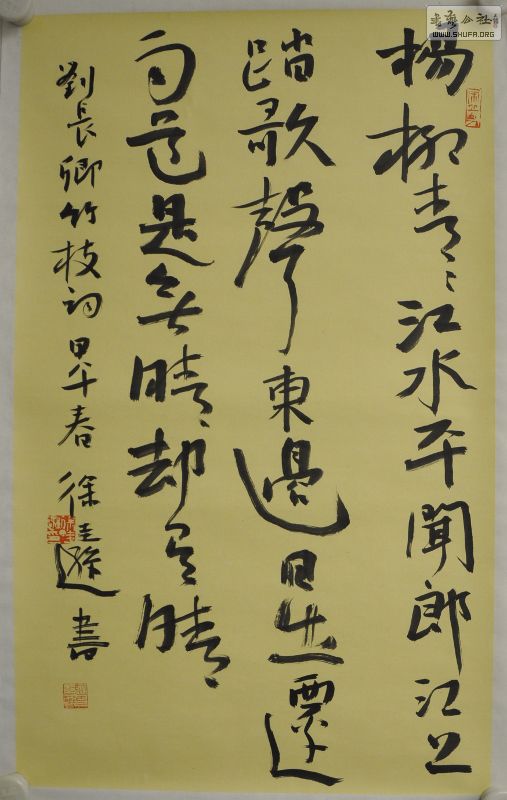 書藝公社
WWW.SHUFA.ORG
楊柳青々江水平聞郎江上
踏歌聲東邊日出西边
雨道是無晴却有晴
劉長卿竹枝詞 甲午春 徐 書